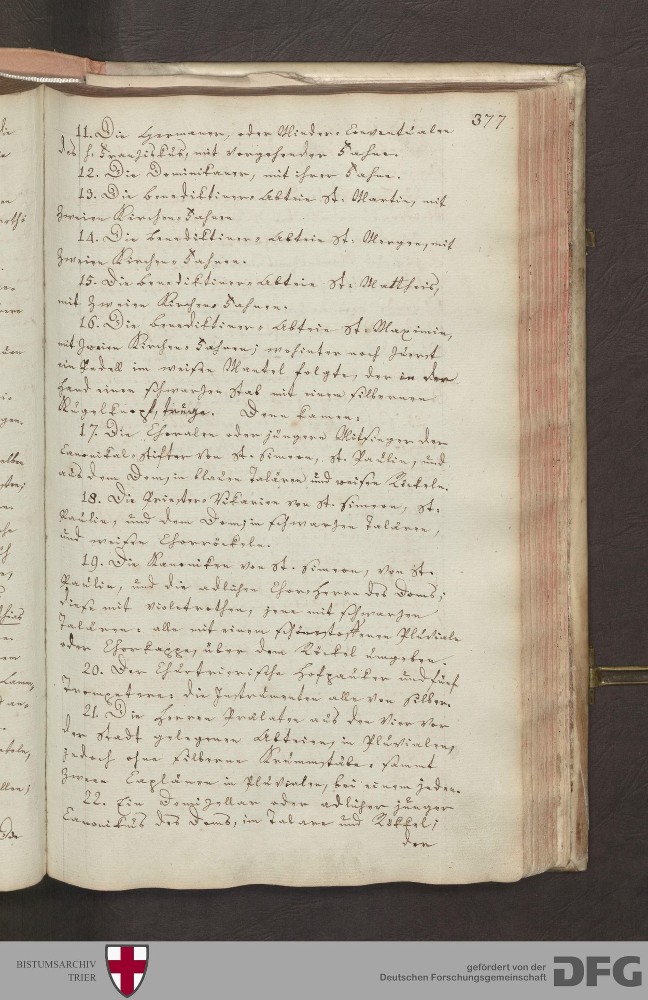 377
11. Die Germaner, oder Minder-Conventualen
des h. Franziskus, mit vorgehender Fahne.
12. Die Dominikaner, mit ihrer Fahne.
13. Die benediktiner-Abtein St: Martin, mit
Zweien Kirchen-Fahnen
14. Die benediktiner-Abtein St: Mergen, mit
Zweien Kirchen-Fahnen.
15. Die benediktiner-Abtein St: Mattheis,
mit Zweien Kirchen-Fahnen.
16. Die benediktiner-Abtein St. Maximin,
mit Zweien Kirchen-Fahnen; wohinter noch zuerst
ein Pedell im weißen Mantel folgte, der in der
Hand einen schwarzen Stab mit einem silbernen
Kugelknopf, truge. Denn kamen:
17. Die Choralen oder jüngern Mitsinger der
Canonikal-Stifter von St. Simeon, St. Paulin, und
aus dem Dom, in blauen Talären und weißen Röckeln.
18. Die Priester-Vikarien von St. Simeon, St.
Paulin, und dem Dom; in schwarzen Talären,
und weißen Chorröckeln.
19. Die Kanoniken von St. Simeon, von St.
Paulin, und die adlichen Chorherren des Doms;
diese mit violetrothen, jene mit schwarzen
Talären: alle mit einem Pluviale
oder Chorkappe, über dem Röckel umgeben.
20. Der Churtrierische Hofpauker und fünf
Trompetere: die Instrumenten alle von Silber.
21. Die Herren Prälaten aus den Vier vor
der Stadt gelegenen Abteien, in Pluvialen,
jedoch ohne silberne Krummstäbe: sammt
Zween Caplänen in Pluvialen, bei einem jeden.
22. Ein Domizellar oder adlicher junger
Canonikus des Doms, im Talare und Rökkel;
der
BISTUMSARCHIV
TRIER
gefördert von der
Deutschen Forschungsgemeinschaft
DFG